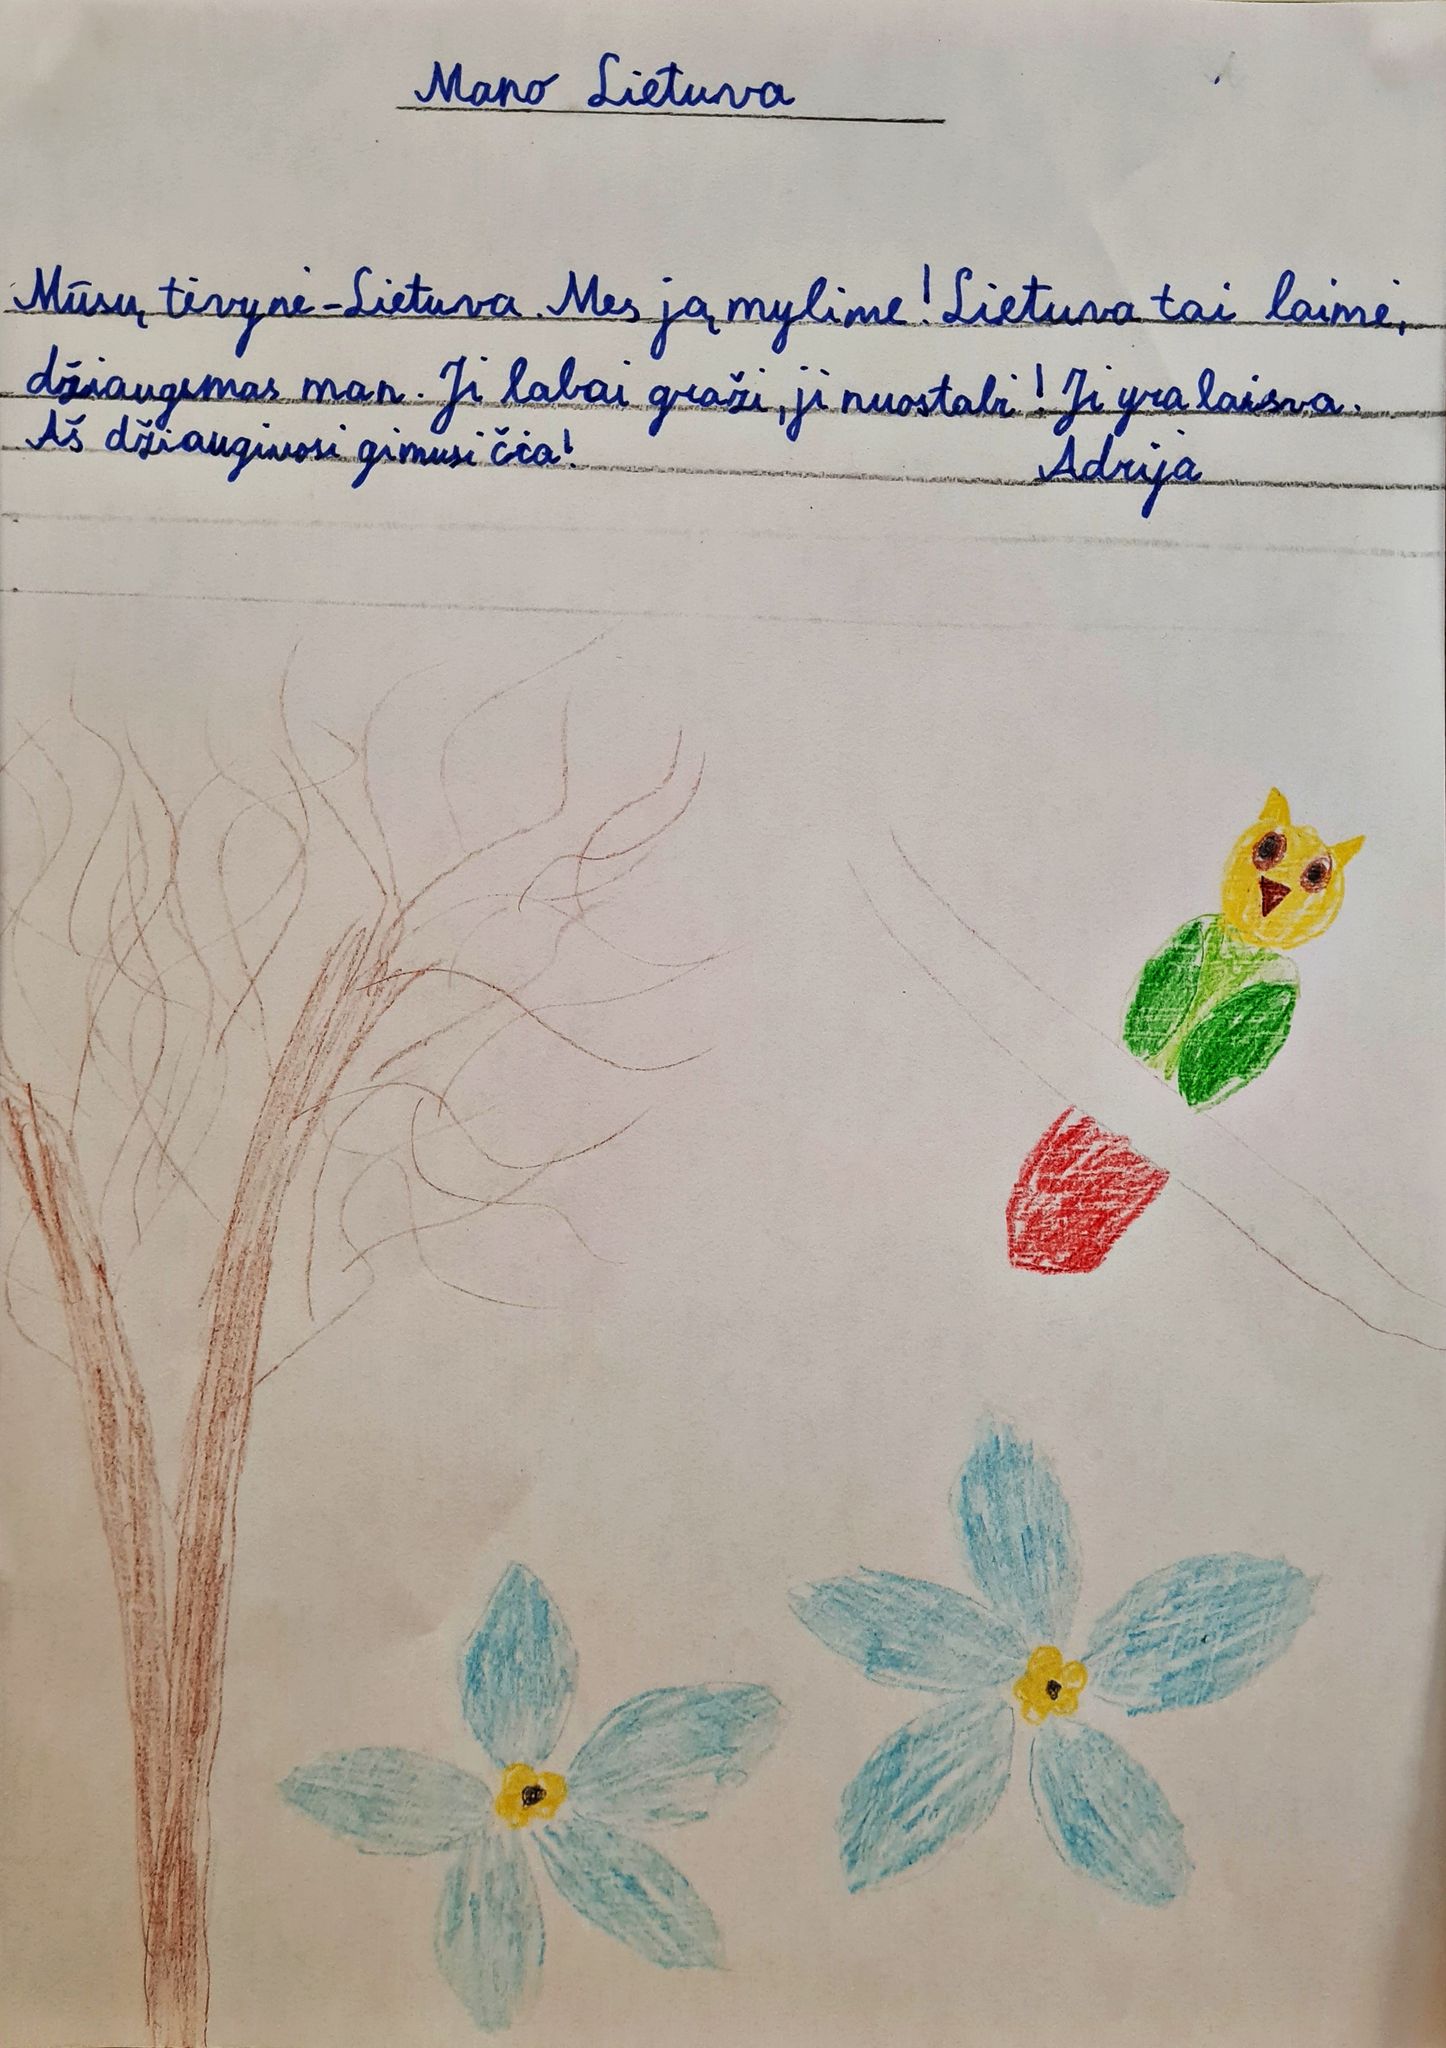 Mano Lietuva
Mūsų tėvynė-Lietuva. Mes ją mylime! Lietuva tai laimė,
džiaugsmas man. Ji labai graži, ji nuostabi! Ji yra laisva.
Aš džiauginosi gimusi čia!
Adrija